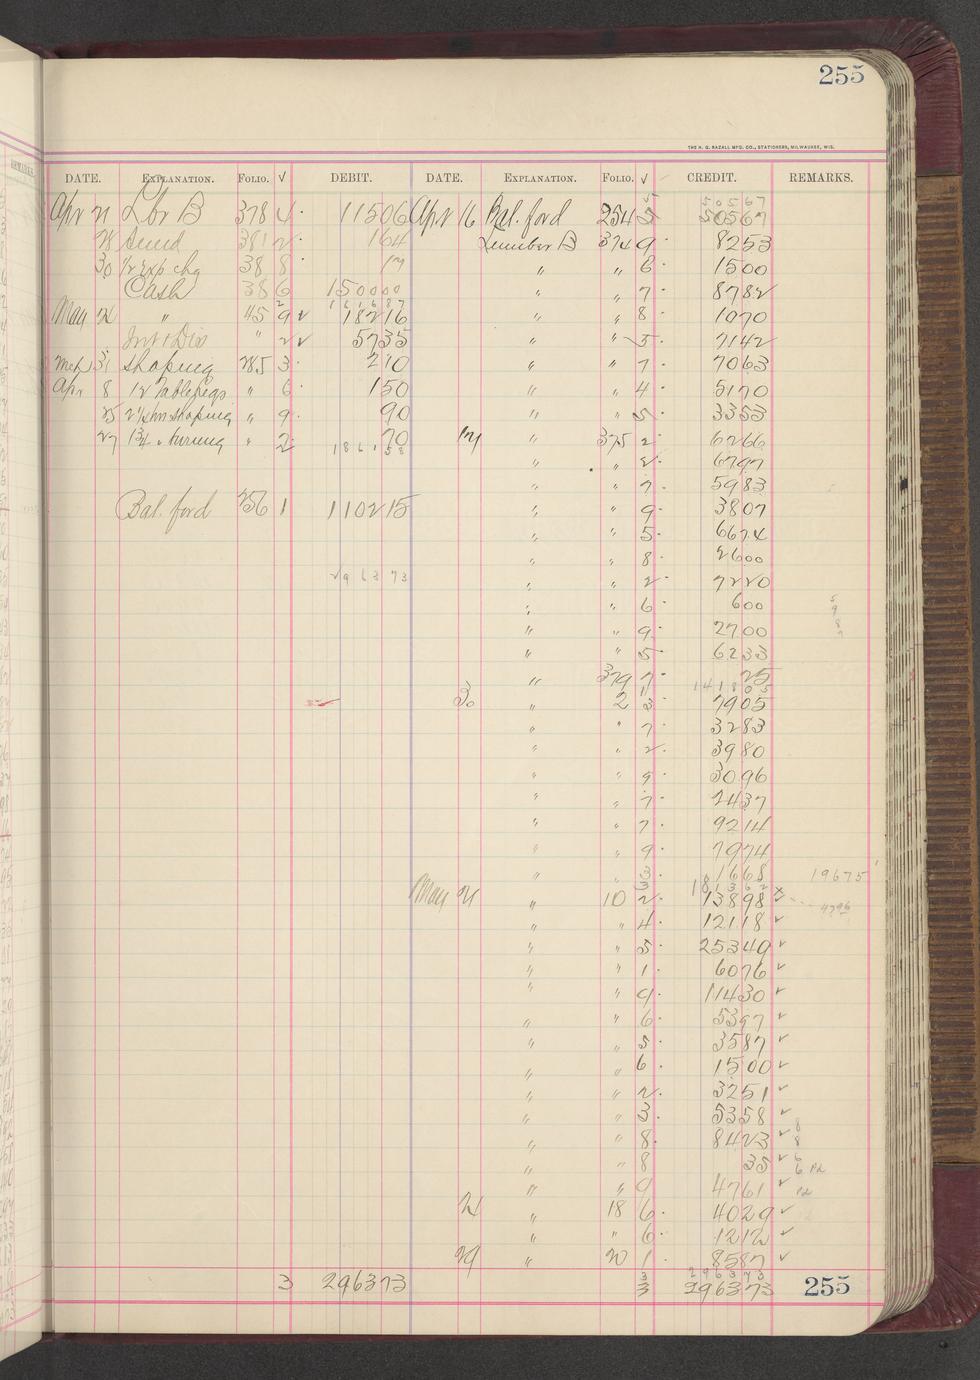 255
THE H. G. RAZALL MFG. CO., STATIONERS, MILWAUKEE, WIS.
DATE. EXPLANATION. FOLIO. √ DEBIT. DATE. EXPLANATION. FOLIO. √ CREDIT. REMARKS.
50567
Apr 21 Lbr B 378 4 11506 Apr 16 Bal. ford 254 5 50567
28 381 2 164 Lumber B 374 9 8253
30 1/2 Exp chg 38 8 17 " " 6 1500
Cash 386 150000 " " 7 8782
161687
May 24 " 45 9 18216 " " 8 1070
Int & Dis " 2 5735 " " 5 7142
Mch 31 Shaping 285 3 210 " " 7 7063
Apr 8 12 Table legs " 6 150 " " 4 5170
25 shaping " 9 90 " " 5 3353
27 turning " 2 70 17 " 375 2 6266
186158
" " 2 6797
" " 7 5983
Bal. ford 256 1 110215 " " 9 3807
" " 5 6674
" " 8 2600
296373 " " 2 7220
" " 6 600
" " 9 2700
" " 5 6233
" 379 7 25
141805
30 " 2 3 7905
" " 7 3283
" " 2 3980
" " 9 3096
" " 7 2437
" " 7 9214
" " 9 7974
" " 3 1668 19675
181362
May 21 " 10 2 13898
" " 4 12118 √
" " 5 25349 √
" " 1 6076 √
" " 9 11430 √
" " 6 5397 √
" " 5 3587 √
" " 6 1500 √
" " 2 3251 √
" " 3 5358 √
" " 8 8423 √
" " 8 35 √
" " 9 4761 √
24 " 18 6 4029 √
" " 6 1212 √
29 " 20 1 8587 √
296373
3 296373 3 296373 255